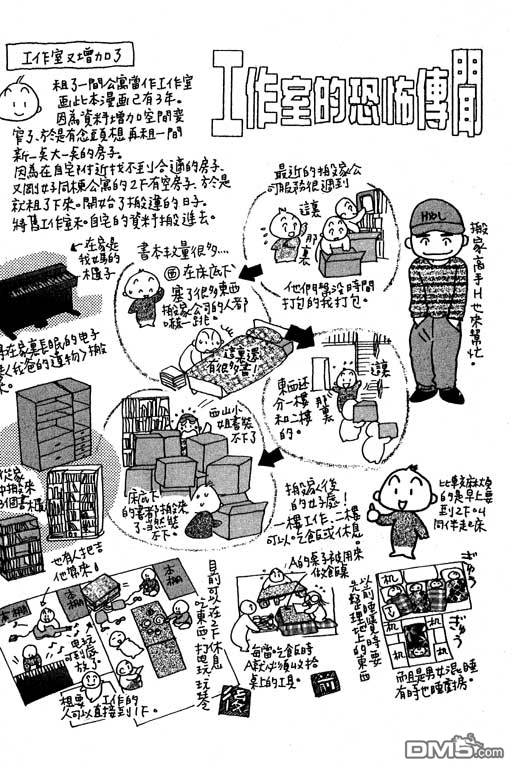 工作室又增加了
工作室的恐怖傳聞
租了一間公寓當作工作室
畫此本漫畫已有3年。
因為資料增加空間變
窄了、於是有念頭想再租一間
新一点大一点的房子。
因為在自宅附近找不到合適的房子、
又剛好同棟公寓的2下有空房子、於是
就租了下來。開始了搬運的日子。
將舊工作室和自宅的資料搬進去。
最近的搬家公
司服務很週到
這裏
那裏
他們幫沒時間
打包的我打包。
HAL
搬家高手H也來幫忙。
←在家是
我媽的
櫃子
書本數量很多…
在床底下
塞了很多東西
搬家公司的人都
嚇一跳。
這裏還
有很多書!
這裏
那裏
東西還
分一樓
和二樓
的。
西山小
姐書裝
不下了
床底下
的書都搬來
了…當然裝
不下。
搬家後
的好處!
一樓工作、二樓
可以吃飯或休息。
比較麻煩
的是早上要
到2下叫
同伴走起床
也有人把吉
他帶來!
本棚
本棚
電玩
可到處
放了
想要工作的
人可以直接到1下。
目前可以在2下休息
吃東西、打電玩、玩琴
後
A的桌子被用來
做飯桌
每當吃飯時
A就必須收拾
桌上的工具。
前
以前睡覺時要
先整理地上的東西
机
机
机
机
ぎゅう
ぎゅう
而且男女混睡
有時也睡廚房。
DM5.com